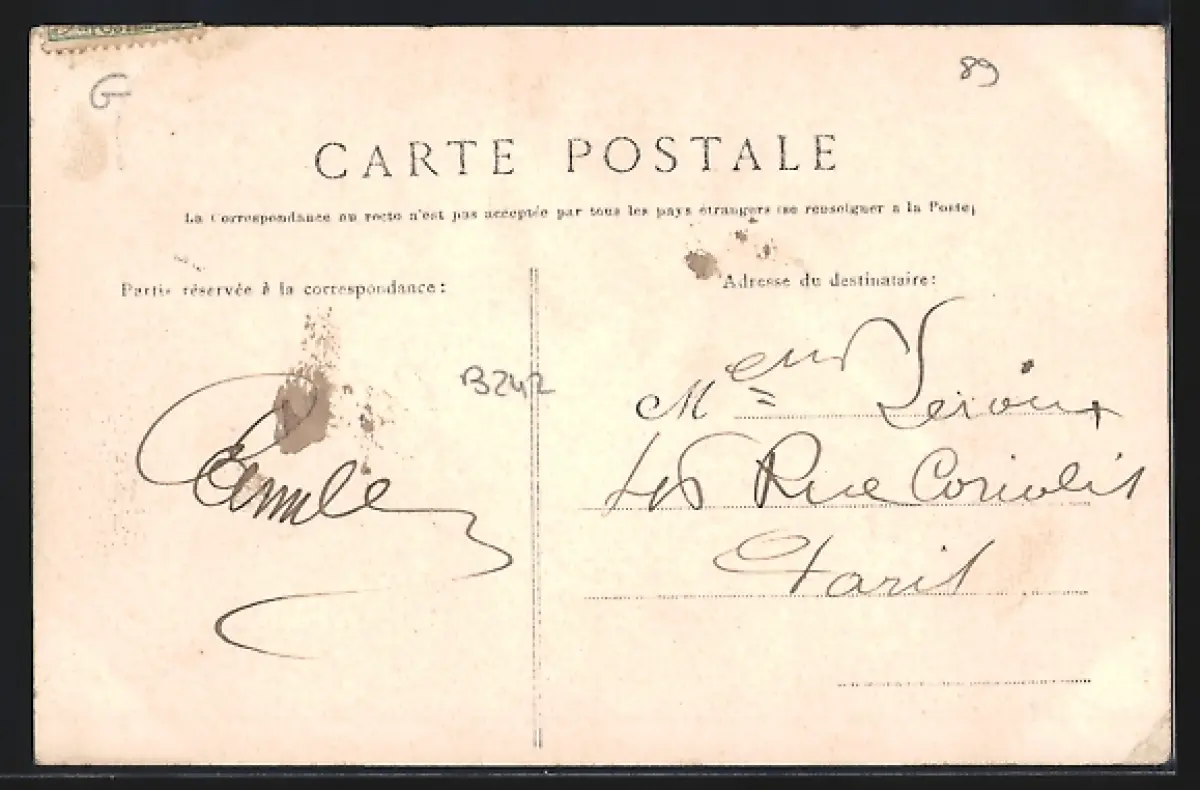 G
89
CARTE POSTALE
La Correspondance au recto n'est pas acceptée par tous les pays étrangers (se renseigner a la Poste)
Partie réservée à la correspondance:
Adresse du destinataire:
B242
Meur Leroux
46 Rue Coriolis
Paris